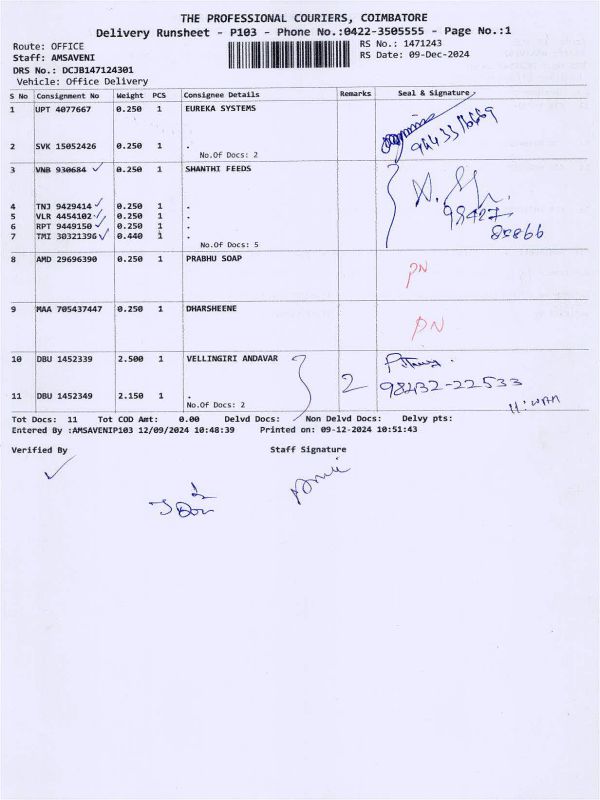 THE PROFESSIONAL COURIERS, COIMBATORE
Delivery Runsheet - P103 - Phone No.:0422-3505555 - Page No.:1
Route: OFFICE
RS No.: 1471243
Staff: AMSAVENI
RS Date: 09-Dec-2024
DRS No.: DCJB147124301
Vehicle: Office Delivery
S No Consignment No Weight PCS Consignee Details Remarks Seal & Signature
1 UPT 4077667 0.250 1 EUREKA SYSTEMS
2 SVK 15052426 0.250 1 .
No.Of Docs: 2
3 VNB 930684 0.250 1 SHANTHI FEEDS
4 TNJ 9429414 0.250 1 .
5 VLR 4454102 0.250 1 .
6 RPT 9449150 0.250 1 .
98427
7 TMI 30321396 0.440 1 .
85866
No.Of Docs: 5
8 AMD 29696390 0.250 1 PRABHU SOAP
PN
9 MAA 705437447 0.250 1 DHARSHEENE
PN
10 DBU 1452339 2.500 1 VELLINGIRI ANDAVAR
2 98432-22533
11 DBU 1452349 2.150 1 .
No.Of Docs: 2
Tot Docs: 11 Tot COD Amt: 0.00 Delvd Docs: Non Delvd Docs: Delvy pts:
Entered By :AMSAVENIP103 12/09/2024 10:48:39 Printed on: 09-12-2024 10:51:43
Verified By Staff Signature